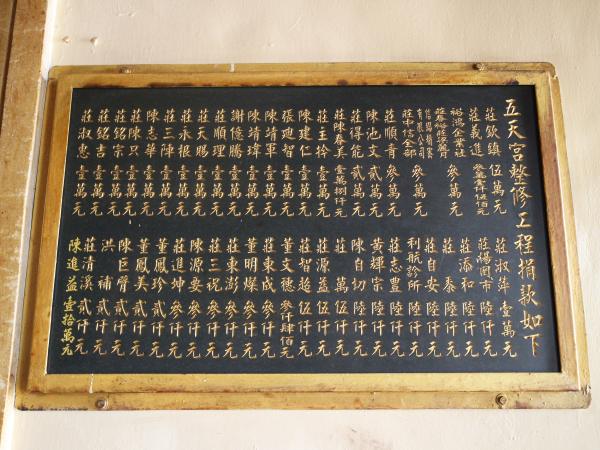 五天宮整修工程捐款如下
莊欽鎮 伍萬元
莊義進 參萬肆仟伍佰元
裕鴻企業社
參萬元
有限公司
莊中信全部
莊順青 參萬元
陳池文 貳萬元
莊得能 貳萬元
莊陳春美 壹萬捌仟元
莊主拎 壹萬元
陳建仁 壹萬元
張迪智 壹萬元
陳靖軍 壹萬元
陳靖瑋 壹萬元
謝億騰 壹萬元
莊順理 壹萬元
莊天賜 壹萬元
莊永根 壹萬元
莊三陣 壹萬元
陳志華 壹萬元
莊陳只 壹萬元
莊銘宗 壹萬元
莊銘吉 壹萬元
莊淑惠 壹萬元
莊淑華 壹萬元
莊楊園市 陸仟元
莊添和 陸仟元
莊泰 陸仟元
莊自安 陸仟元
利航診所 陸仟元
莊志豊 陸仟元
黃輝宗 陸仟元
陳自切 陸仟元
莊萬 伍仟元
莊源益 伍仟元
莊智超 伍仟元
董文德 參仟肆佰元
莊東成 參仟元
董明燦 參仟元
莊東澎 參仟元
莊三悦 參仟元
陳源安 參仟元
莊進坤 參仟元
董鳳珍 貳仟元
董鳳美 貳仟元
陳巨賢 貳仟元
洪補 貳仟元
莊清溪 貳仟元
陳進益 壹拾萬元